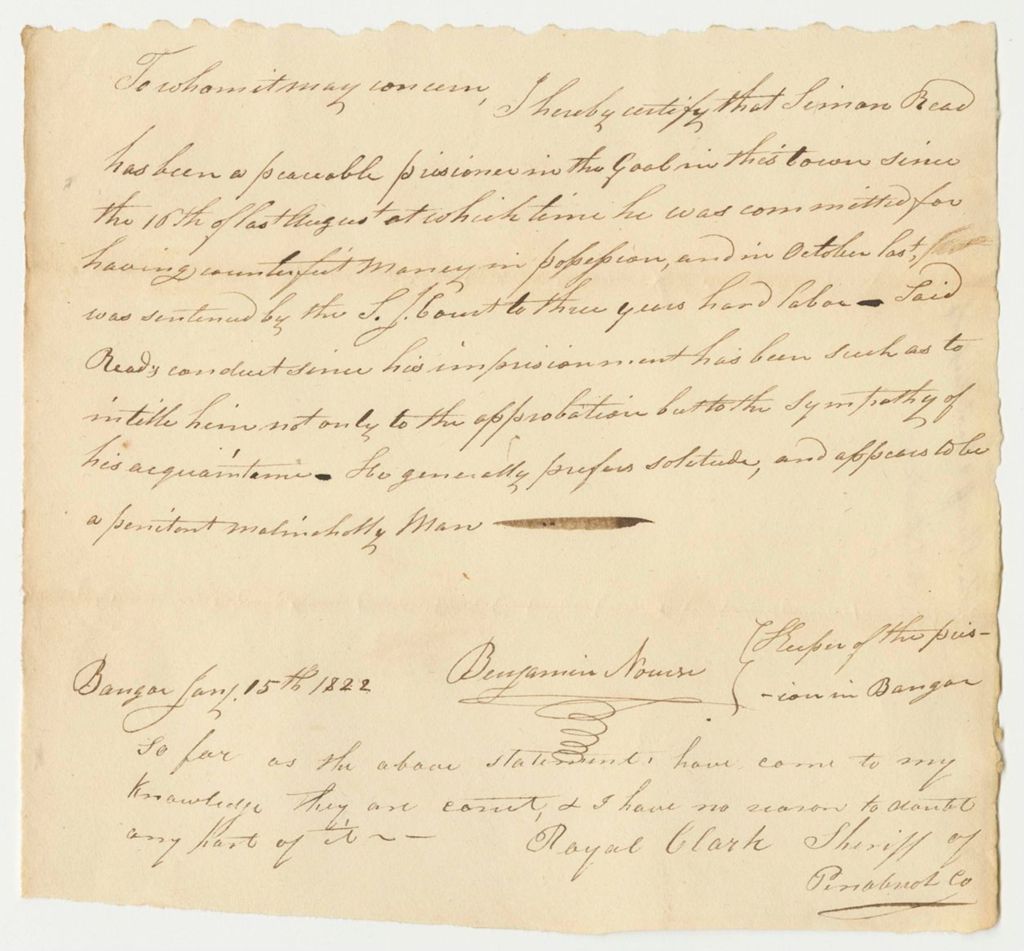 To whom it may concern,
I hereby certify that Simon Read
has been a peaceable prisioner in the Goal in this town since
the 16th of last August at which time he was committed for
having counterfeit Money in possession, and in October last,
was sentenced by the S. J. Court to three years hard labor – Said
Read's conduct since his imprisionment has been such as to
intitle him not only to the approbation but to the sympathy of
his acquaintance – He generally prefers solitude, and appears to be
a penitent malincholly Man
Bangor Jany. 15th 1822
Benjamin Nourse
{ Keeper of the pris-
-ion in Bangor
So far as the above statements have come to my
knowledge they are correct, & I have no reason to doubt
any part of it ~ –
Royal Clark Sheriff of
Penobscot Co